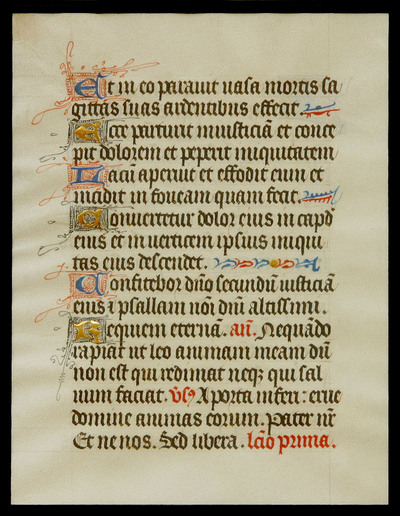 Et in eo parauit uasa mortis sa
gittas suas ardentibus effecit.
Ecce parturit iniusticiā et conce
pit dolorem et peperit iniquitatem
Lacū aperuit et effodit eum et
incidit in foueam quam fecit.
Conuertetur dolor eius in capđ
eius et in uerticem ipsius iniqui
tas eius descendet.
Confitebor dn̄o secundū iusticiā
eius ⁊ psallam nōi dn̄i altissimi.
Requiem eternā. an̄. Nequādo
rapiat ut leo animam meam dū
non est qui redimat neqꝫ qui sal
uum faciat. v̄s A porta inferi: erue
domine animas eorum. Pater nr̄
Et ne nos. Sed libera. lc̄io prima.